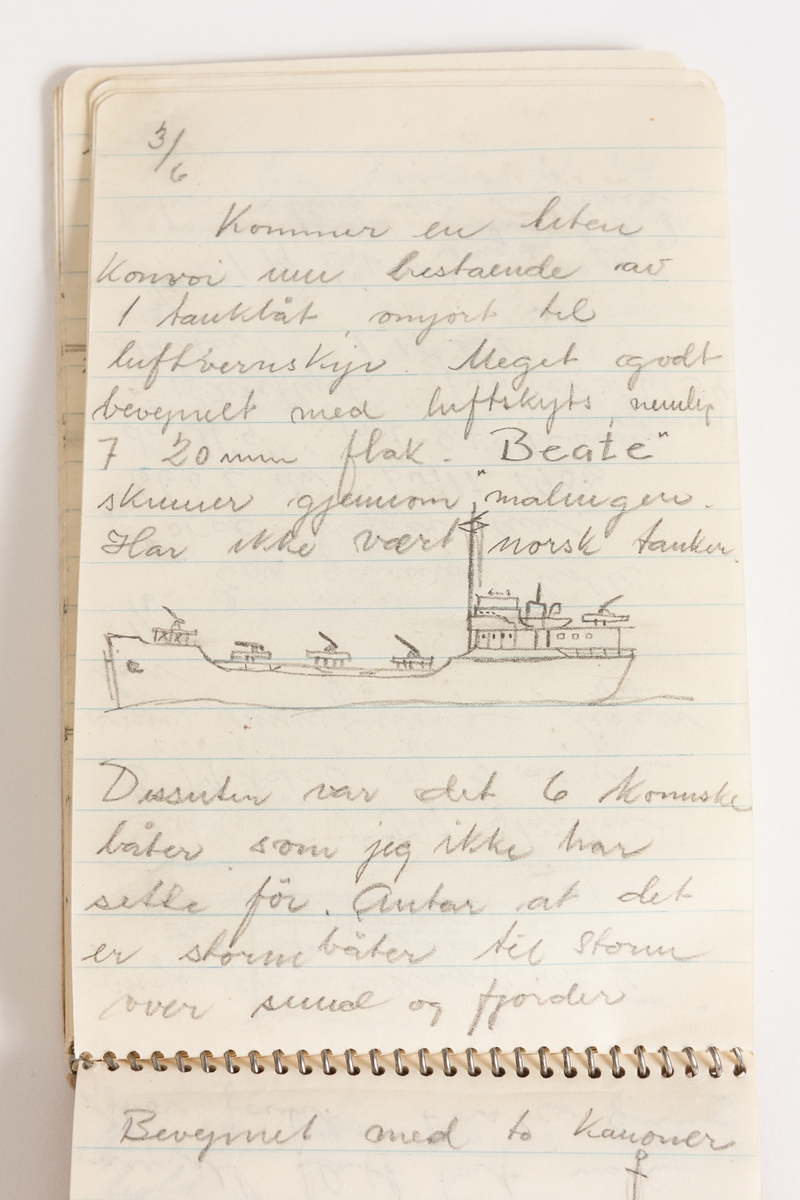 3/6
Kommer en liten
Konvoi inn bestående av
1 tankbåt, omgjort til
luftvernskip. Meget godt
bevepnet med luftskyts, nemlig
7 20 mm flak. "Beate"
skinner gjennom malingen.
Har ikke vært norsk tanker.
Dessuten var det 6 komiske
båter som jeg ikke har
sette för. Antar at det
er stormbåter til storm
over sund og fjorder
Bevepnet med to Kanoner